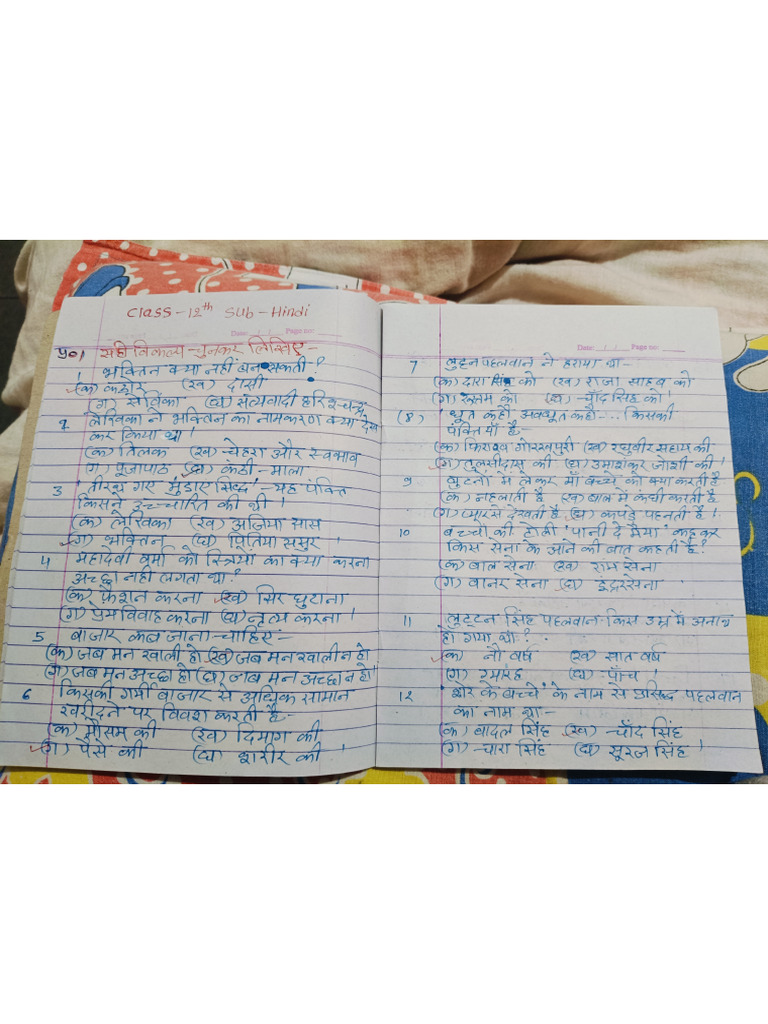 Class - 12th Sub - Hindi
Date: / / Page no:
प्र०1 सही विकल्प चुनकर लिखिए -
1 भक्तिन क्या नहीं बन सकती ?
(क) कठोर (ख) दासी
(ग) सेविका (घ) सत्यवादी हरिश्चन्द्र
2 लेखिका ने भक्तिन का नामकरण क्या देख
कर किया था !
(क) तिलक (ख) चेहरा और स्वभाव
(ग) पूजापाठ (घ) कंठी - माला
3 'तीरथ गए मुंडाए सिद्ध' - यह पंक्ति
किसने उच्चारित की थी !
(क) लेखिका (ख) अजिया सास
(ग) भक्तिन (घ) पितिया ससुर !
4 महादेवी वर्मा को स्त्रियों का क्या करना
अच्छा नहीं लगता था ?
(क) फैशन करना (ख) सिर घुटाना
(ग) प्रेम विवाह करना (घ) नृत्य करना !
5 बाजार कब जाना चाहिए -
(क) जब मन खाली हो (ख) जब मन खाली न हो
(ग) जब मन अच्छा हो (घ) जब मन अच्छा न हो !
6 किसकी गर्मी बाजार से अधिक सामान
खरीदने पर विवश करती है -
(क) मौसम की (ख) दिमाग की
(ग) पैसे की (घ) शरीर की !
Date: / / Page no:
7 लुट्टन पहलवान ने हराया था -
(क) दारा सिंह को (ख) राजा साहब को
(ग) रुस्तम को (घ) चाँद सिंह को !
(8) 'धूत कहौ अवधूत कहौ... किसकी
पंक्तियाँ हैं -
(क) फिराख गोरखपुरी (ख) रघुवीर सहाय की
(ग) तुलसीदास की (घ) उमाशंकर जोशी की !
9 घुटनों में लेकर माँ बच्चे को क्या करती है
(क) नहलाती है (ख) बाल में कंघी करती है
(ग) प्यार से देखती है (घ) कपड़े पहनती है !
10 बच्चों की टोली 'पानी दे मैया' कहकर
किस सेना के आने की बात कहती है ?
(क) बाल सेना (ख) राम सेना
(ग) वानर सेना (घ) इंद्रसेना
11 लुट्टन सिंह पहलवान किस उम्र में अनाथ
हो गया था ?
(क) नौ वर्ष (ख) सात वर्ष
(ग) ग्यारह (घ) पाँच
12 'शेर के बच्चे' के नाम से प्रसिद्ध पहलवान
का नाम था -
(क) बादल सिंह (ख) चाँद सिंह
(ग) चारा सिंह (घ) सूरज सिंह !